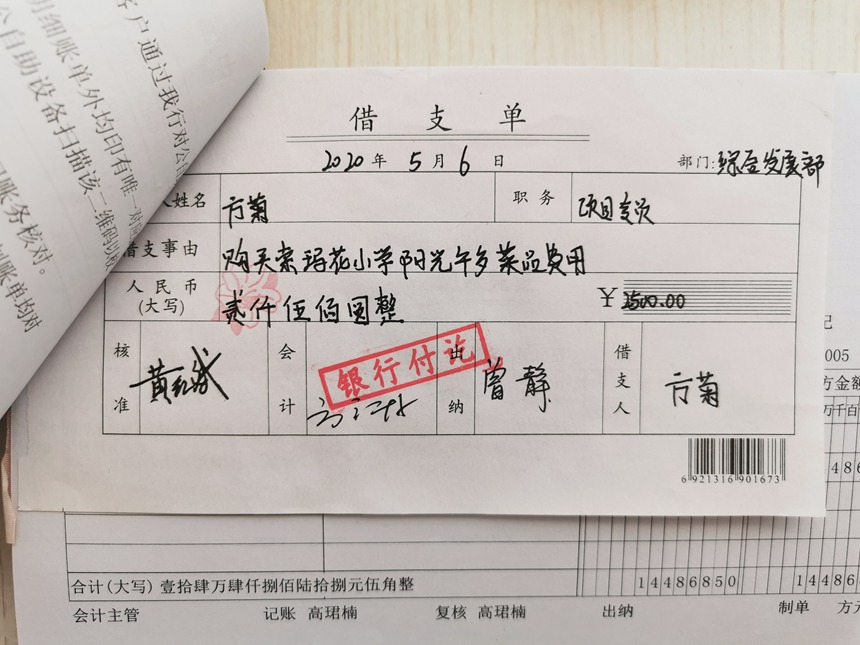 客户通过我行对公自
明细账单外均印有唯一对
公自助设备扫描该二维码以
账务核对。
账单均对
借支单
2020年5月6日 部门:综合发展部
人姓名 方菊 职务 项目专员
借支事由 购买索玛花小学阳光午多菜品费用
人民币(大写) 贰仟伍佰圆整 ¥2500.00
核准 会计 出纳 曾静 借支人 方菊
银行付讫
6 921316 901673
记
005
方金额
万千百
486
合计(大写) 壹拾肆万肆仟捌佰陆拾捌元伍角整 14486850 14486
会计主管 记账 高珺楠 复核 高珺楠 出纳 制单 方